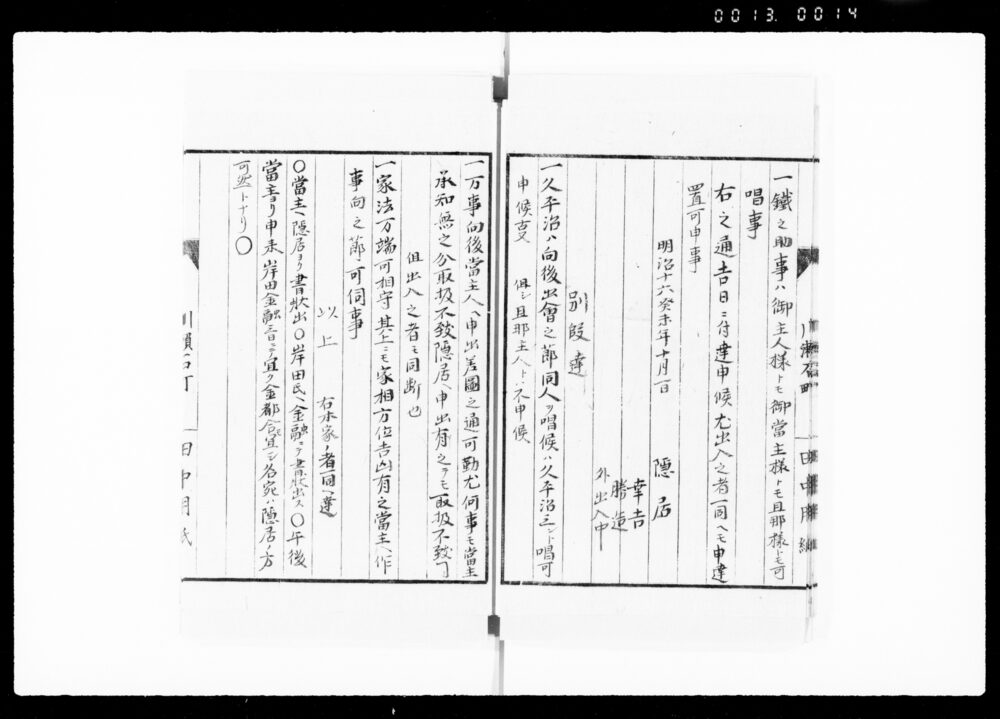 0013. 0014
一鐵之助事ハ御主人様トモ御當主様トモ旦那様トモ可
唱事
右之通吉日ニ付達申候尤出入之者一同ヘモ申達
置可申事
明治十六癸未年十月一日
隠居
幸吉
勝造
外出入中
別段達
一久平治ハ向後出會之節同人ヲ唱候ハ久平治三ント唱可
申候事 但シ旦那主人トハ不申候
一万事向後當主人ヘ申出差圖之通可勤尤何事モ當主
承知無之分取扱不致隠居ヘ申出有之テモ取扱不致可
但出入之者モ同断也
一家法万端可相守其上ニモ家相方位吉凶有之當主ヘ作
事向之節可伺事
以上
右本家ノ者一同ヘ達
〇當主ヘ隠居ヨリ書状出〇岸田氏ヘ金融ニテ書状出ス〇午後
當主ヨリ申来岸田金融三百ニテ宜ク金都合宜シ名宛ハ隠居ノ方
可然トナリ〇
田中用